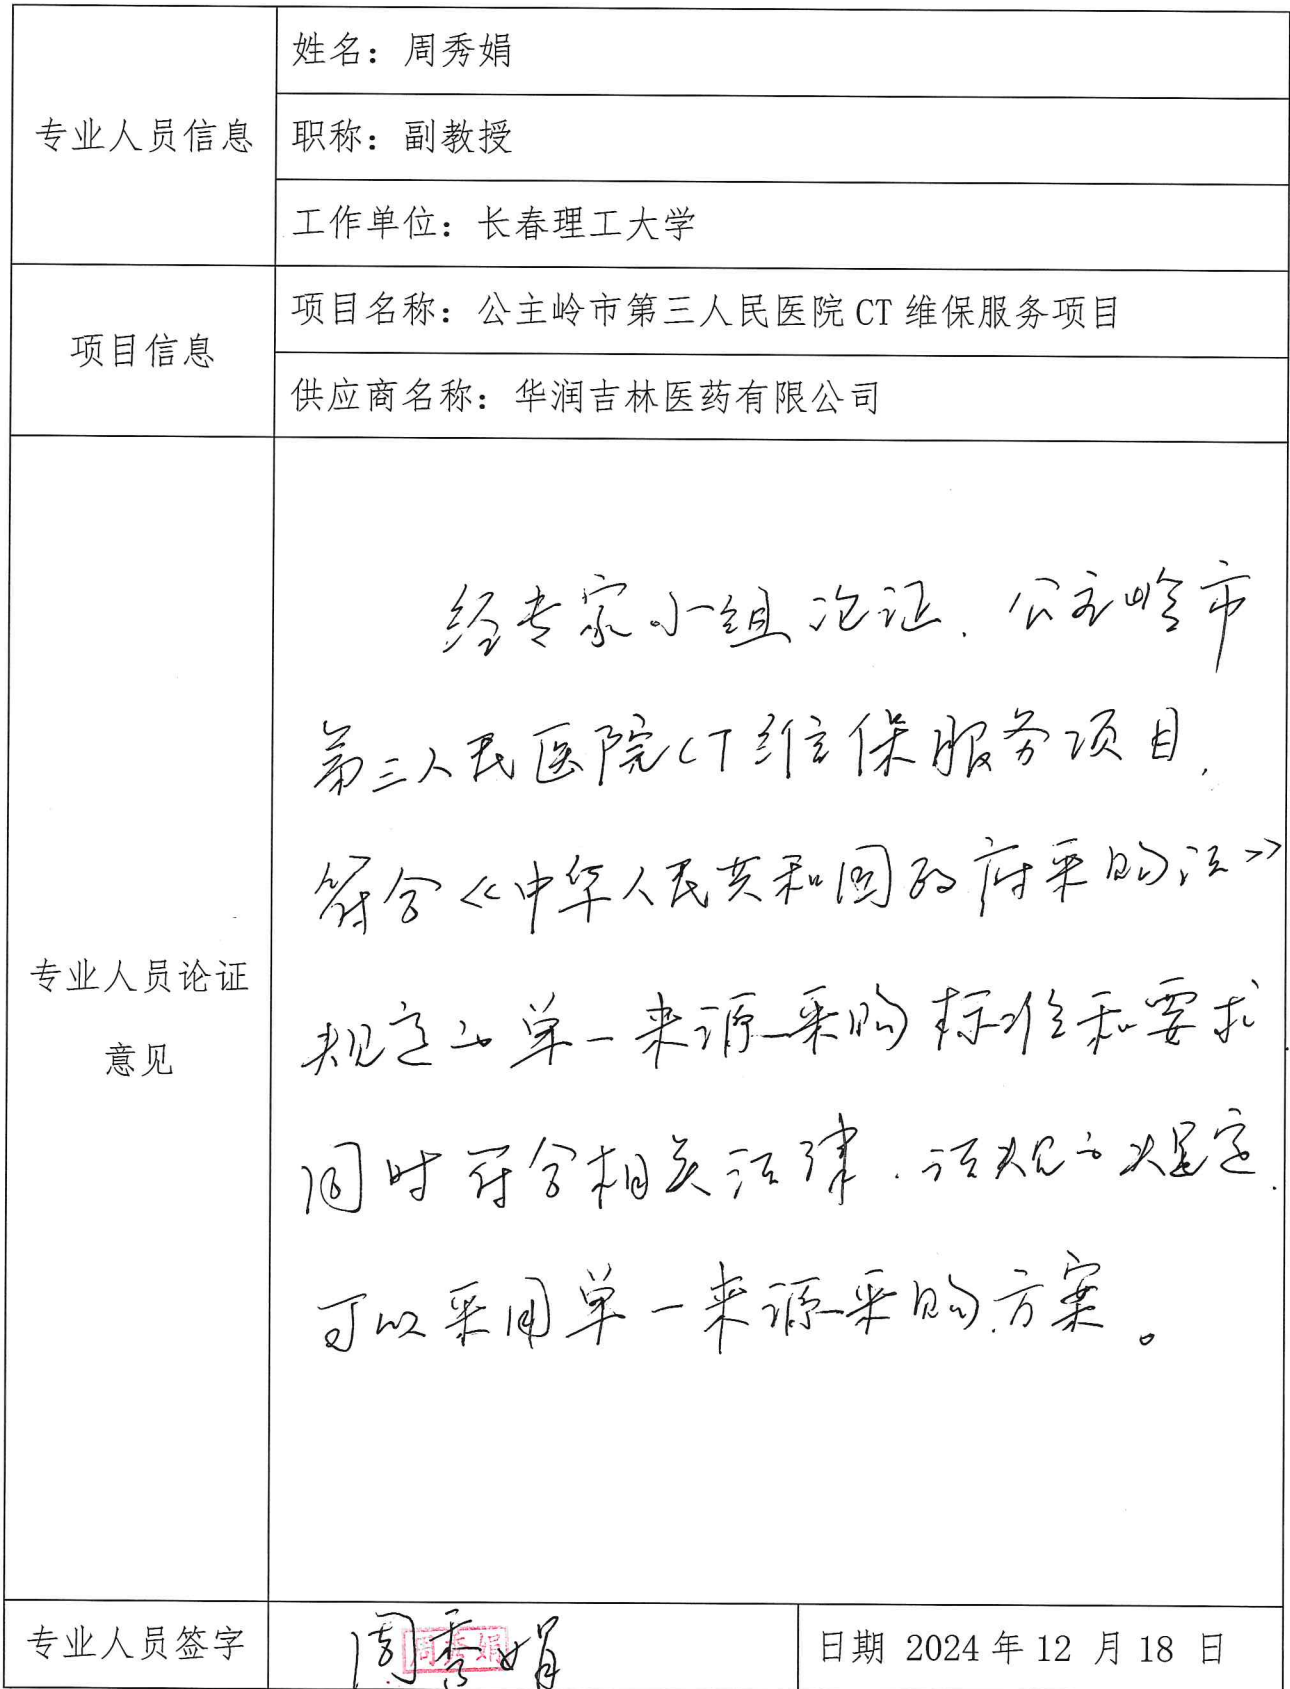 专业人员信息
姓名：周秀娟
职称：副教授
工作单位：长春理工大学
项目信息
项目名称：公主岭市第三人民医院 CT 维保服务项目
供应商名称：华润吉林医药有限公司
专业人员论证
意见
经专家小组论证，公主岭市
第三人民医院CT维保服务项目，
符合《中华人民共和国政府采购法》
规定的单一来源采购标准和要求
同时符合相关法律．法规的规定．
可以采用单一来源采购方案。
专业人员签字
周秀娟
周秀娟
日期 2024 年 12 月 18 日